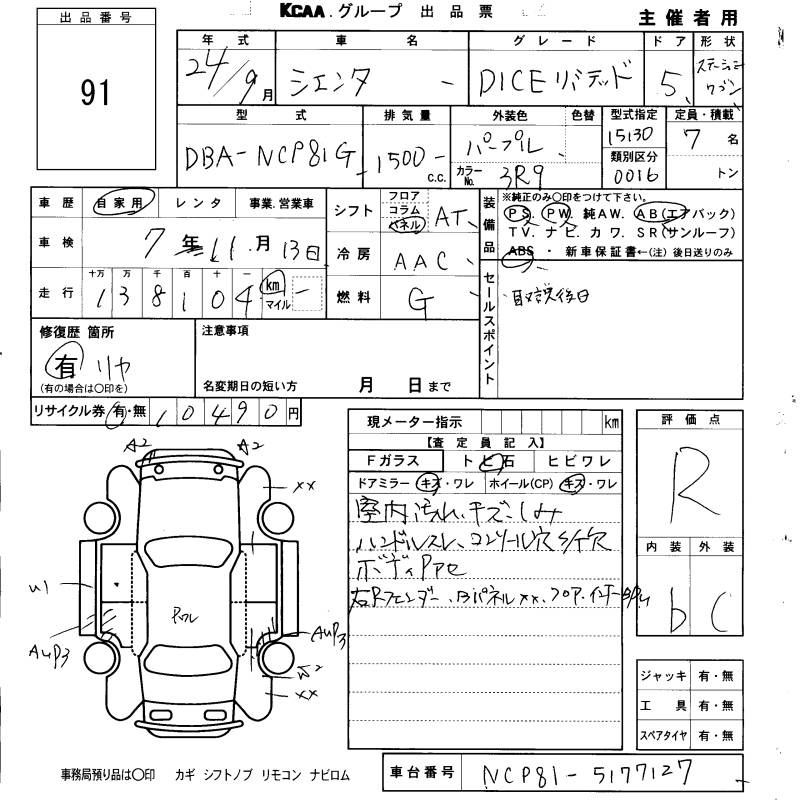 KCAA.グループ 出品票
主催者用
出品番号
91
年式 車名 グレード ドア 形状
24/9月 シエンタ DICEリミテッド 5 ステーションワゴン
型式 排気量 外装色 色替 型式指定 定員・積載
DBA-NCP81G 1500 c.c. パープル 15130 7名
カラーNo. 3R9 類別区分 0016 トン
車歴 自家用 レンタ 事業.営業車
車検 7年11月13日
走行 十万 万 千 百 十 一 km マイル
138104
シフト フロア コラム パネル AT
冷房 AAC
燃料 G
装備品
※純正のみ〇印をつけて下さい。
PS. PW. 純AW. AB(エアバック)
TV. ナビ. カワ. SR(サンルーフ)
ABS ・ 新車保証書←(注)後日送りのみ
セールスポイント
取説後日
修復歴 箇所
有 リヤ
(有の場合は〇印を)
注意事項
名変期日の短い方 月 日まで
リサイクル券 有・無 10490円
現メーター指示 km
【査定員記入】
Fガラス トビ石 ヒビワレ
ドアミラー キズ・ワレ ホイール(CP) キズ・ワレ
室内汚れ、キズ、しみ
ハンドルスレ、コンソール穴
ボディ
右Rフェンダー、Bパネルxx、フロア、インナー
評価点
R
内装 外装
b C
A2 A2
xx
U1
AUP3
AUP3
W2
xx
ジャッキ 有・無
工具 有・無
スペアタイヤ 有・無
事務局預り品は〇印 カギ シフトノブ リモコン ナビロム
車台番号 NCP81-5177127